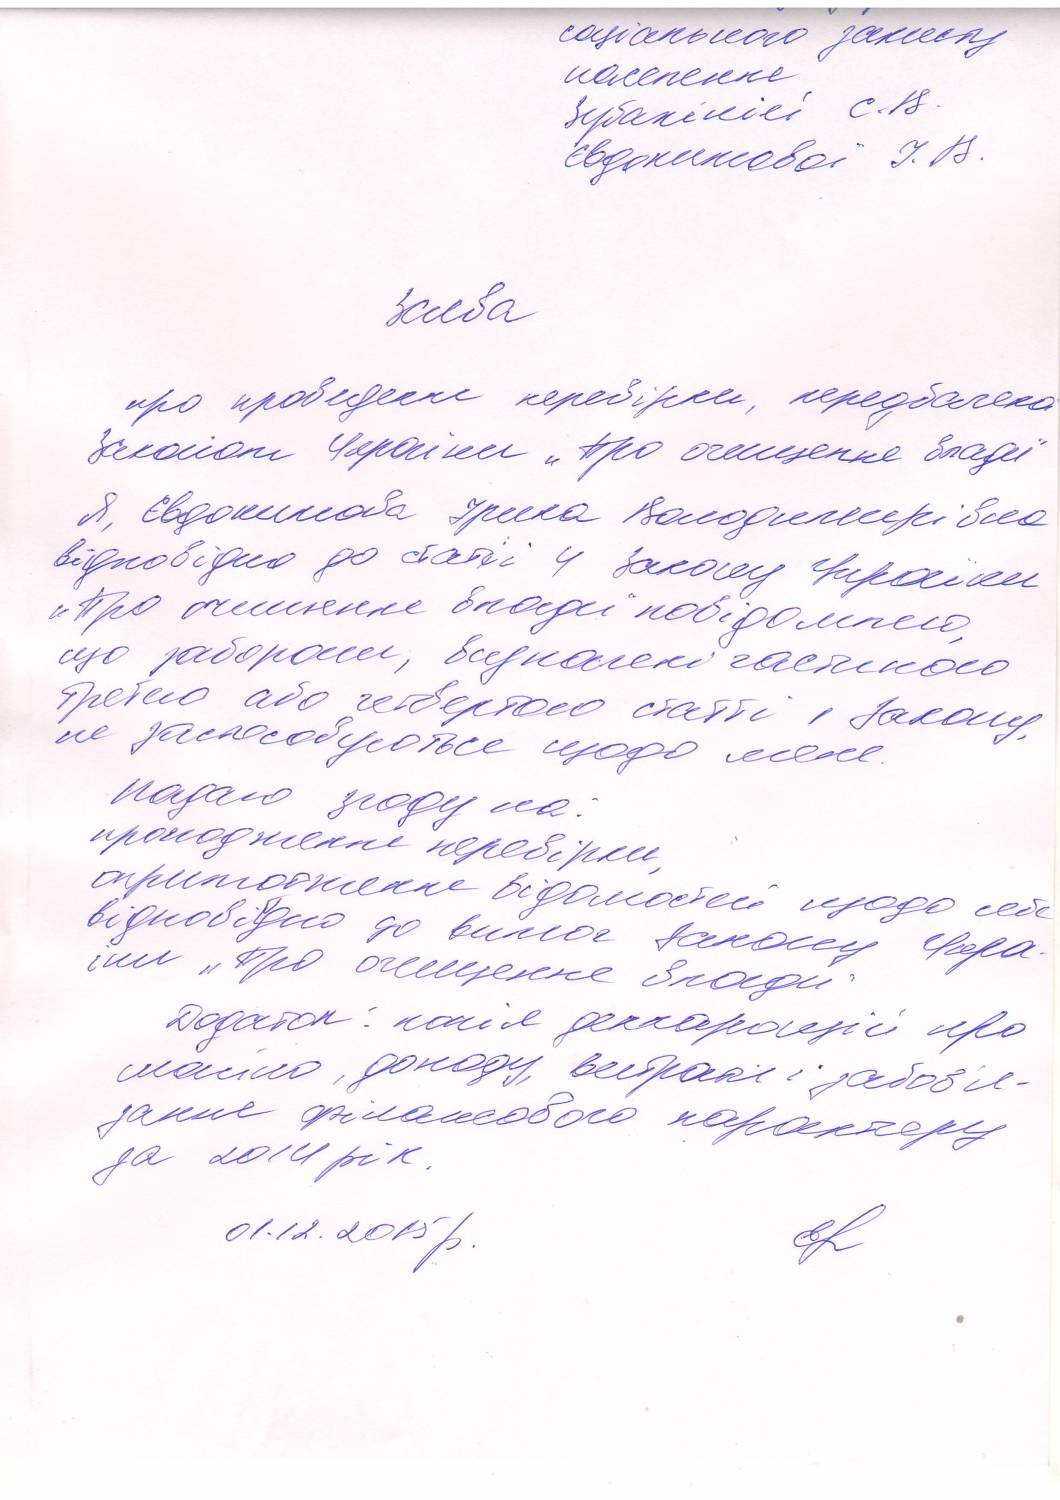 соціального захисту
населення
Зубакіній С.В.
Євдокимової І.В.
Заява
про проведення перевірки, передбачена
Законом України „Про очищення влади"
Я, Євдокимова Ірина Володимирівна
відповідно до статті 4 Закону України
„Про очищення влади" повідомляю,
що заборони, визначені частиною
третьою або четвертою статті 1 Закону,
не застосовуються щодо мене.
Надаю згоду на:
проходження перевірки,
оприлюднення відомостей щодо себе
відповідно до вимог Закону Укра-
їни „Про очищення влади".
Додаток: копія декларації про
майно, доходи, витрати і зобов'я-
зання фінансового характеру
за 2014 рік.
01.12.2015 р.